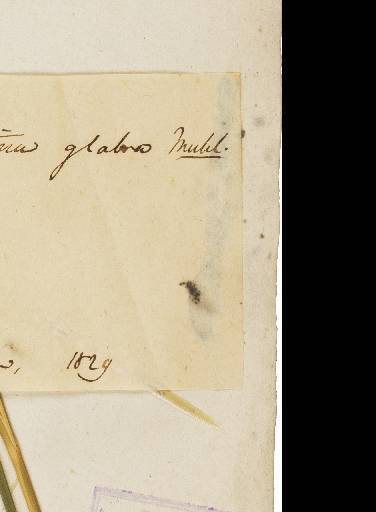 glabra Muhl.
1829